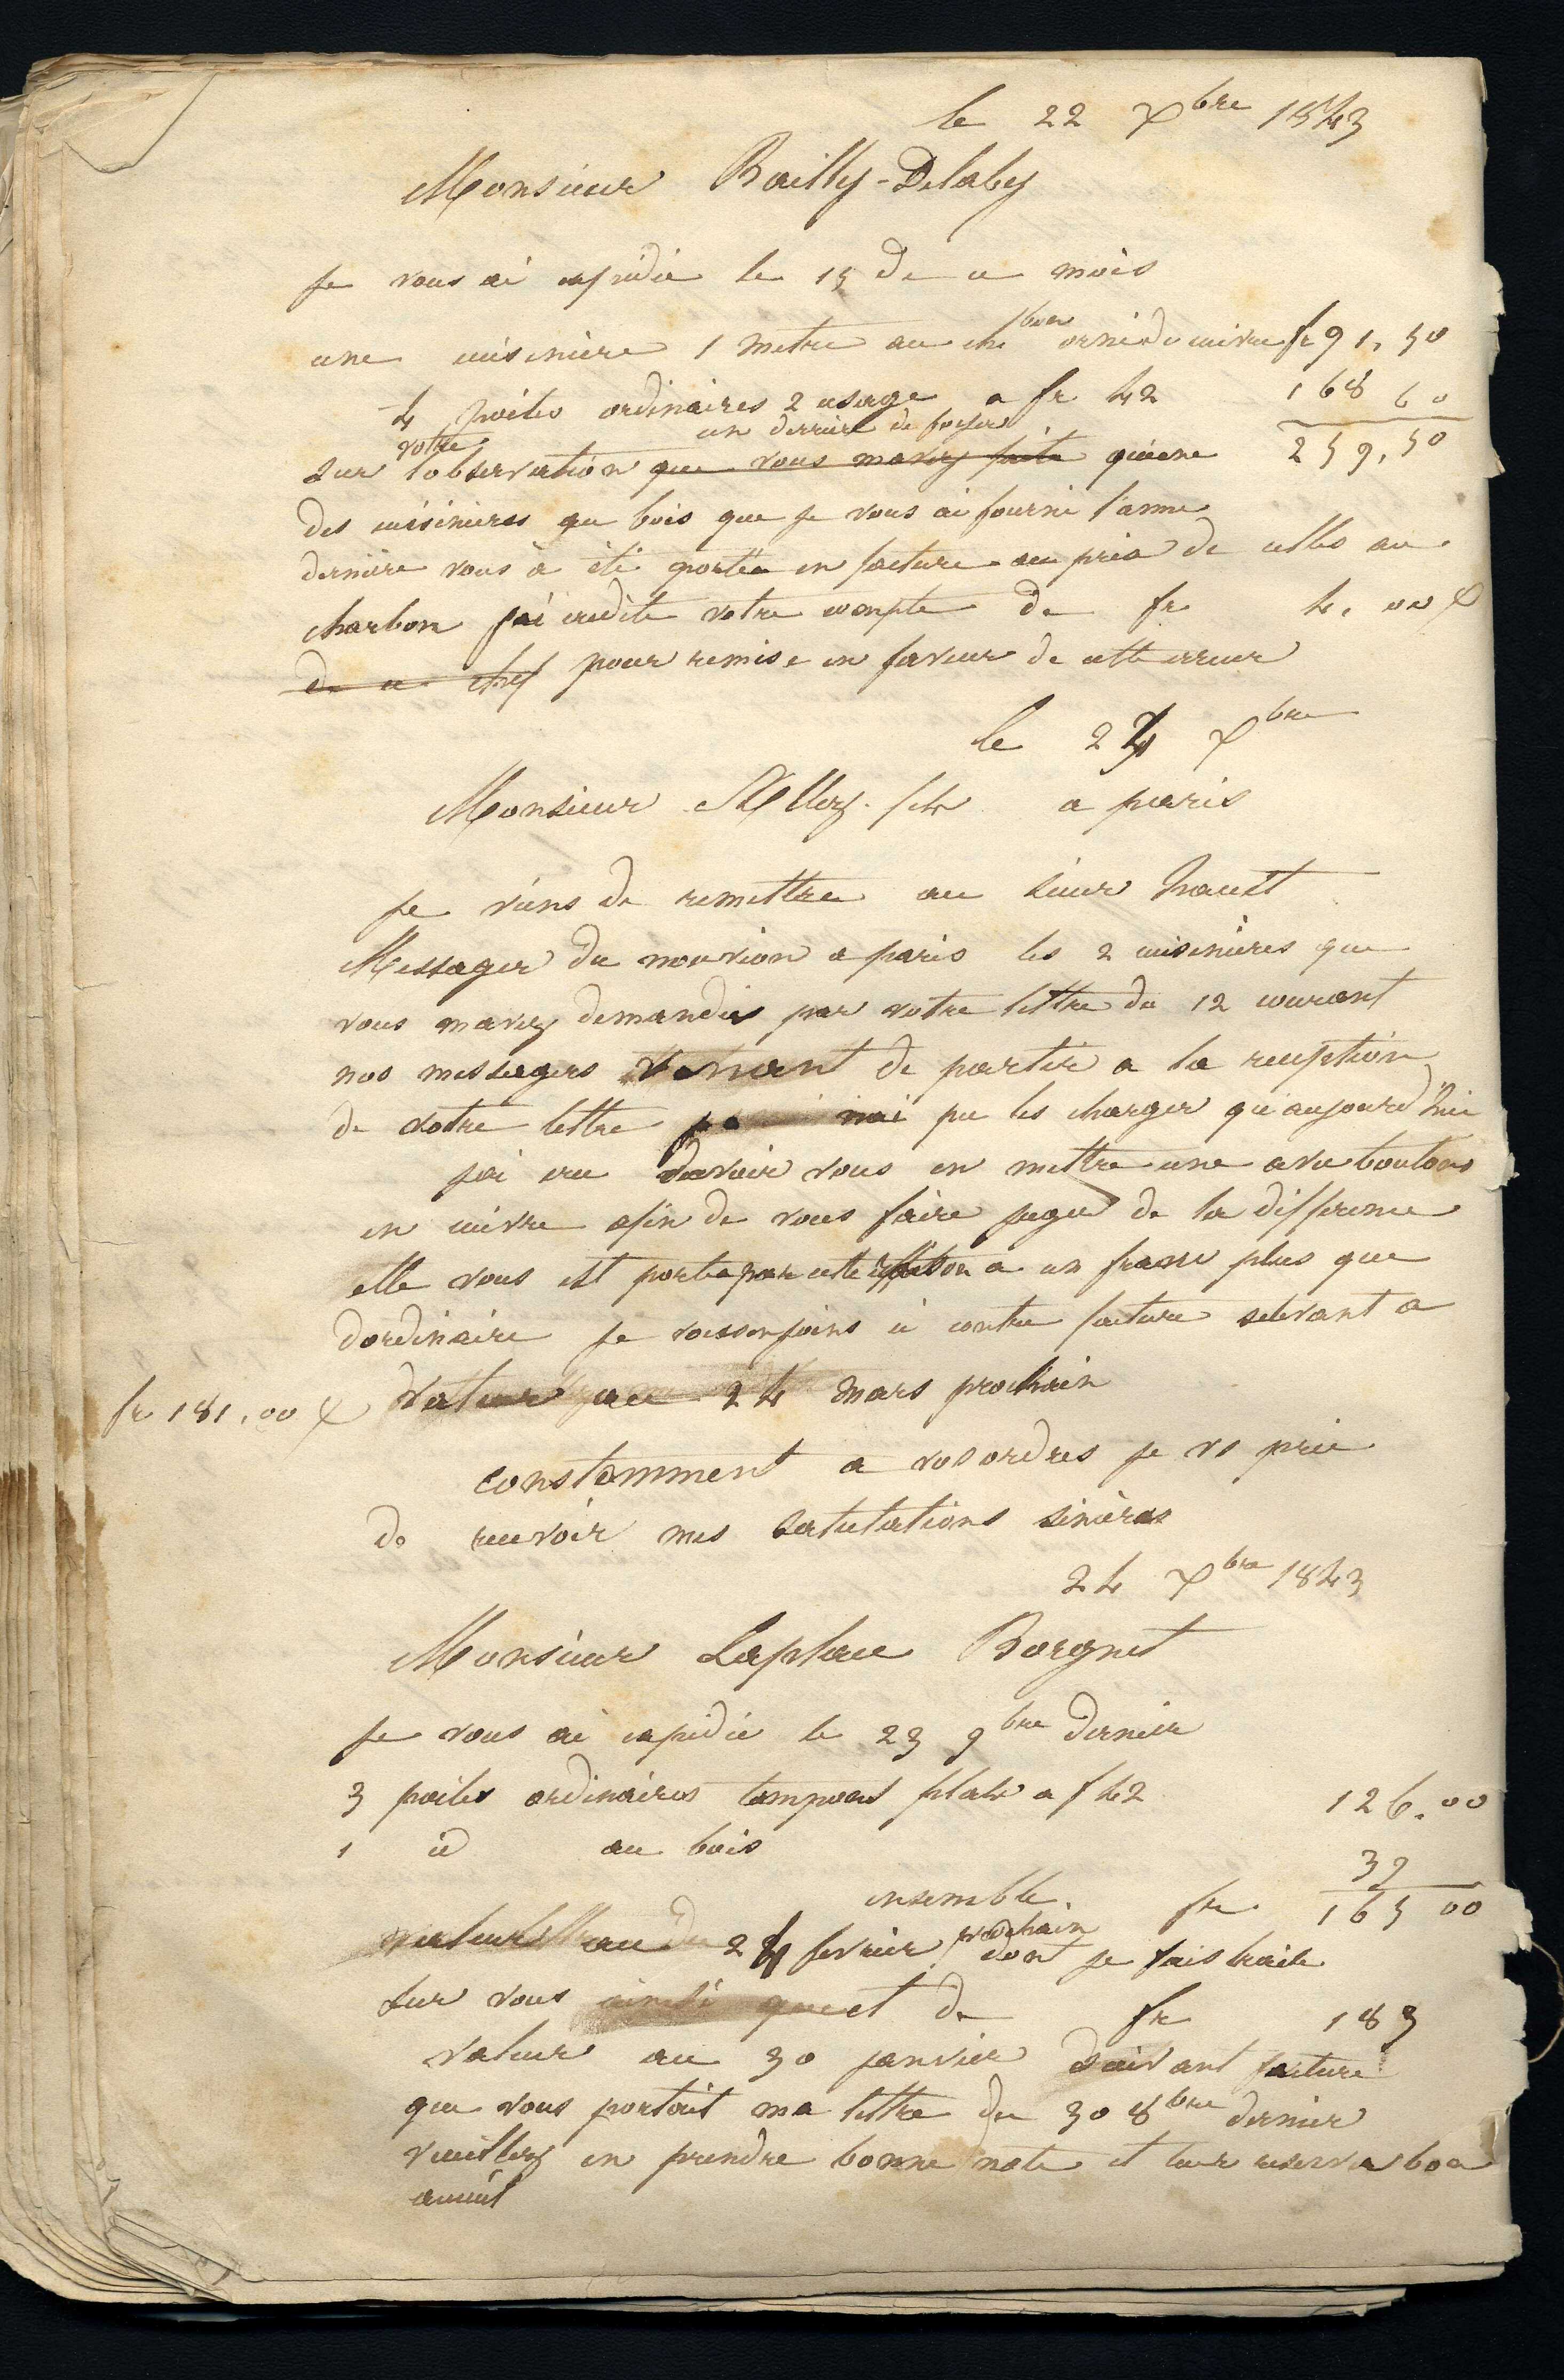 le 22 Xbre 1843
Monsieur Bailly-Delaby
Je vous ai expédié le 15 de ce mois
une cuisinière 1 metre au chbon orné de cuivre fr 91,50
4 poiles ordinaires 2 usage a fr 42 168 60
un derrière de foyer
votre
Sur l'observation que vous mavez faite qu'une 259,50
des cuisinieres au bois que je vous ai fourni l'anne
dernière vous à été portée en facture au prix de celles au
charbon j'ai credite votre compte de fr 4.00
de ce chef pour remise en faveur de cette erreur
le 24 Xbre
Monsieur a paris
je viens de remettre au sieur
Messager du nouvion a paris les 2 cuisinières que
vous mavez demandées par votre lettre du 12 courant
nos messagers venant de partir a la reception
de votre lettre je nai pu les charger qu'aujourd'hui
jai cru devoir vous en mettre une avec boutons
en cuivre afin de vous faire juger de la difference
elle vous est portee par cette a un franc plus que
dordinaire je vous en joins ci contre facture selevant a
fr 181,00 valeur au 24 mars prochain
constamment a vos ordres je vs prie
de recevoir mes salutations sincères
24 Xbre 1843
Monsieur Laplace Borgnet
Je vous ai expédié le 23 9bre dernier
3 poiles ordinaires tampons plats a f 42 126.00
1 id au bois 39
ensemble. fr 165 00
valeur au 24 fevrier prochain dont je fais traite
sur vous que et de fr 183
valeur au 30 janvier suivant facture
que vous portait ma lettre du 30 8bre dernier
veuillez en prendre bonne note et leur reserver bon
acueil